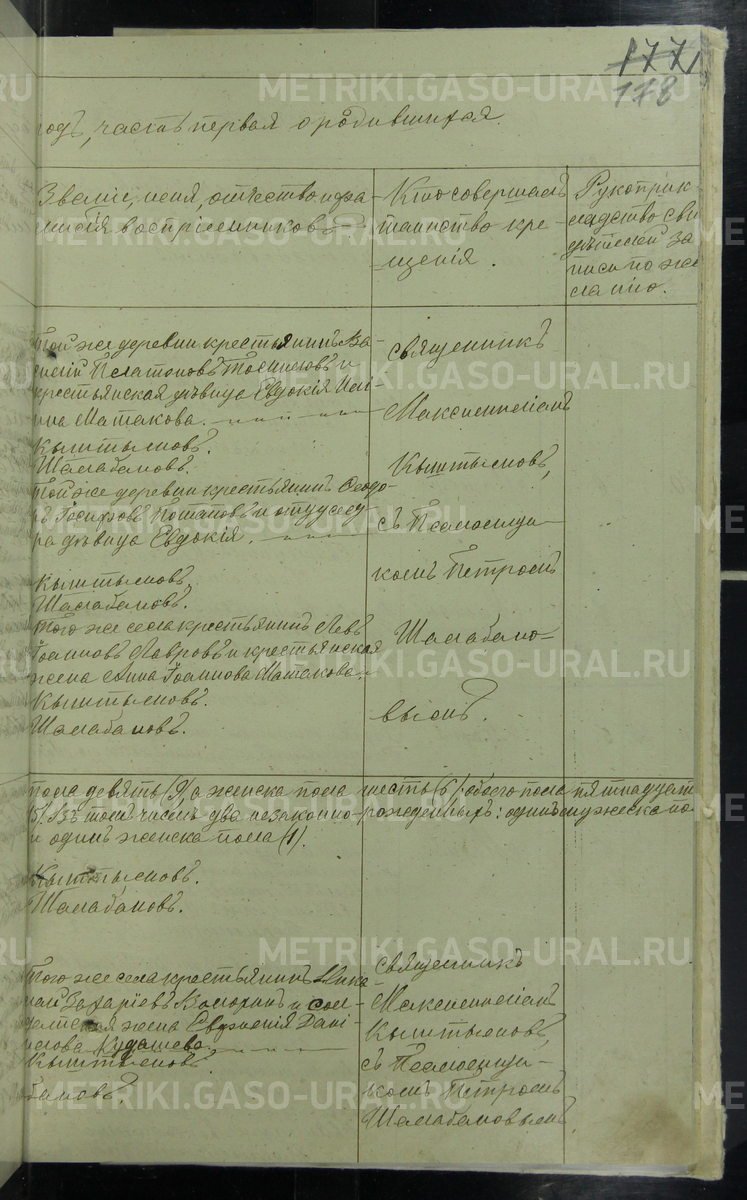 177
178
годъ, часть первая о родившихся.
Званіе, имя, отчество и фа-
милія воспріемниковъ.
Кто совершалъ
таинство кре-
щенія.
Рукоприк-
ладство сви
дѣтелей за
писи по же
ланію.
Той же деревни крестьянинъ Ва-
силій Платоновъ и
крестьянская дѣвица Евдокія
Матакова.
Кыштымовъ.
Шалабановъ.
Той же деревни крестьянинъ Ѳеодо-
ръ Потаповъ и
дѣвица Евдокія.
Кыштымовъ.
Шалабановъ.
Того же села крестьянинъ Левъ
Іоанновъ Лавровъ и крестьянская
жена Анна Іоаннова Матакова.
Кыштымовъ.
Шалабановъ.
Священникъ
Максимиліанъ
Кыштымовъ,
съ Псаломщи-
комъ Петромъ
Шалабано-
вымъ.
пола девять (9), а женска пола шесть (6) обоего пола пятнадцать
(15) Въ томъ числѣ два незаконно-рожденныхъ: одинъ мужеска по
и одинъ женска пола (1).
Кыштымовъ.
Шалабановъ.
Того же села крестьянинъ Ника-
Захаріевъ и сол-
датская жена Евгенія Дані-
илова Кудашева.
Кыштымовъ.
бановъ.
Священникъ
Максимиліанъ
Кыштымовъ,
съ Псаломщи-
комъ Петромъ
Шалабановымъ.
METRIKI.GASO-URAL.RU